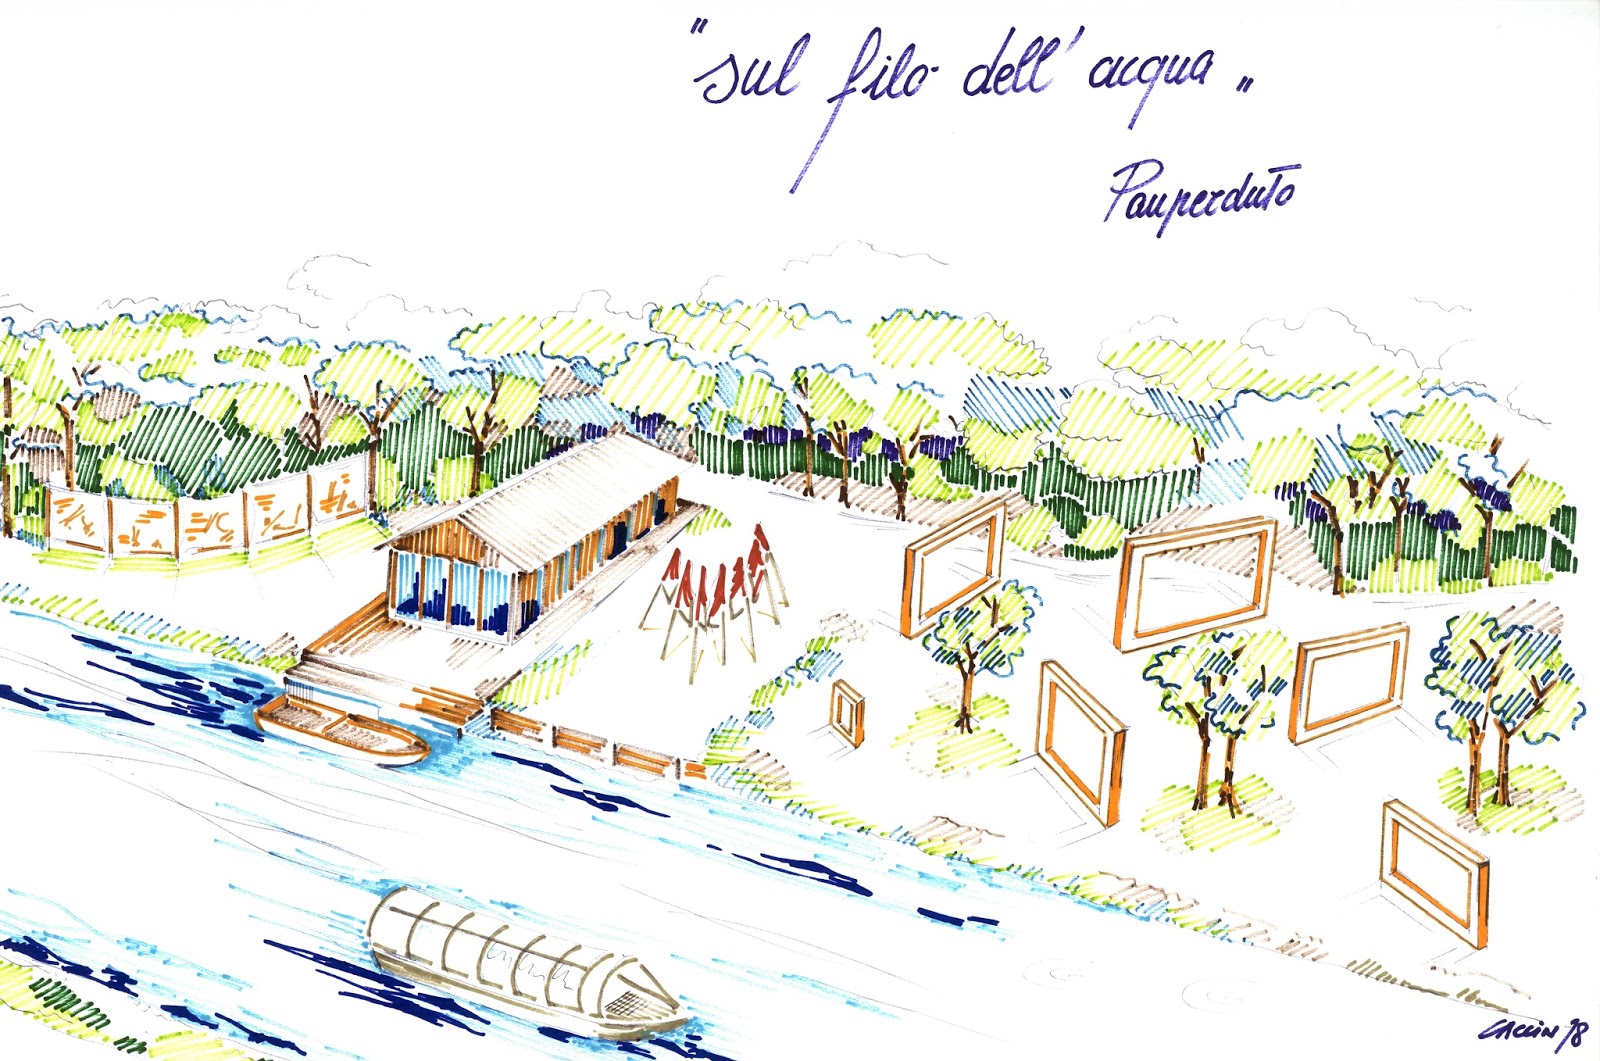 "sul filo dell'acqua"
Panperduto
CACCIN '18